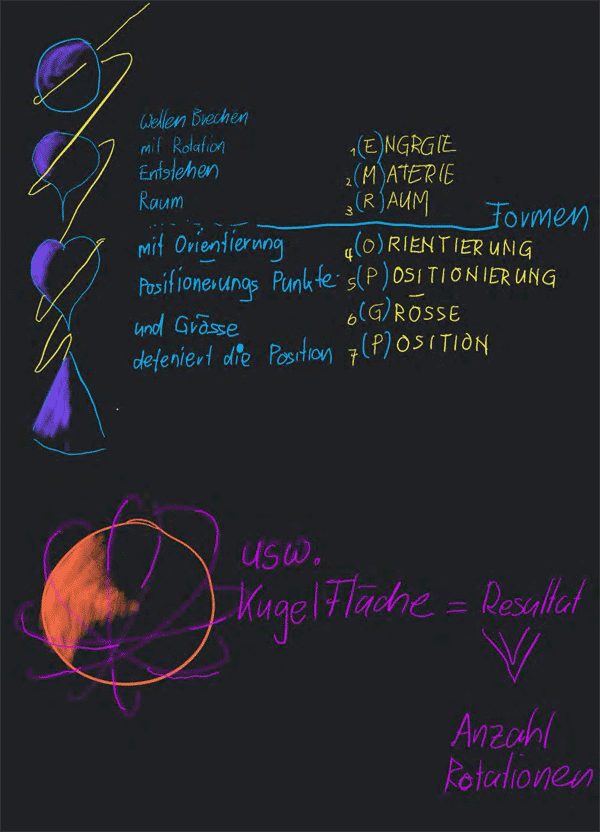 Wellen Brechen
mit Rotation
Entstehen
Raum
1(E)NGRGIE
2(M)ATERIE
3(R)AUM
Formen
mit Orientierung
Positionerungs Punkte
und Grösse
defeniert die Position
4(O)RIENTIERUNG
5(P)OSITIONIERUNG
6(G)RÖSSE
7(P)OSITION
usw.
KugelFläche = Resultat
Anzahl
Rotationen